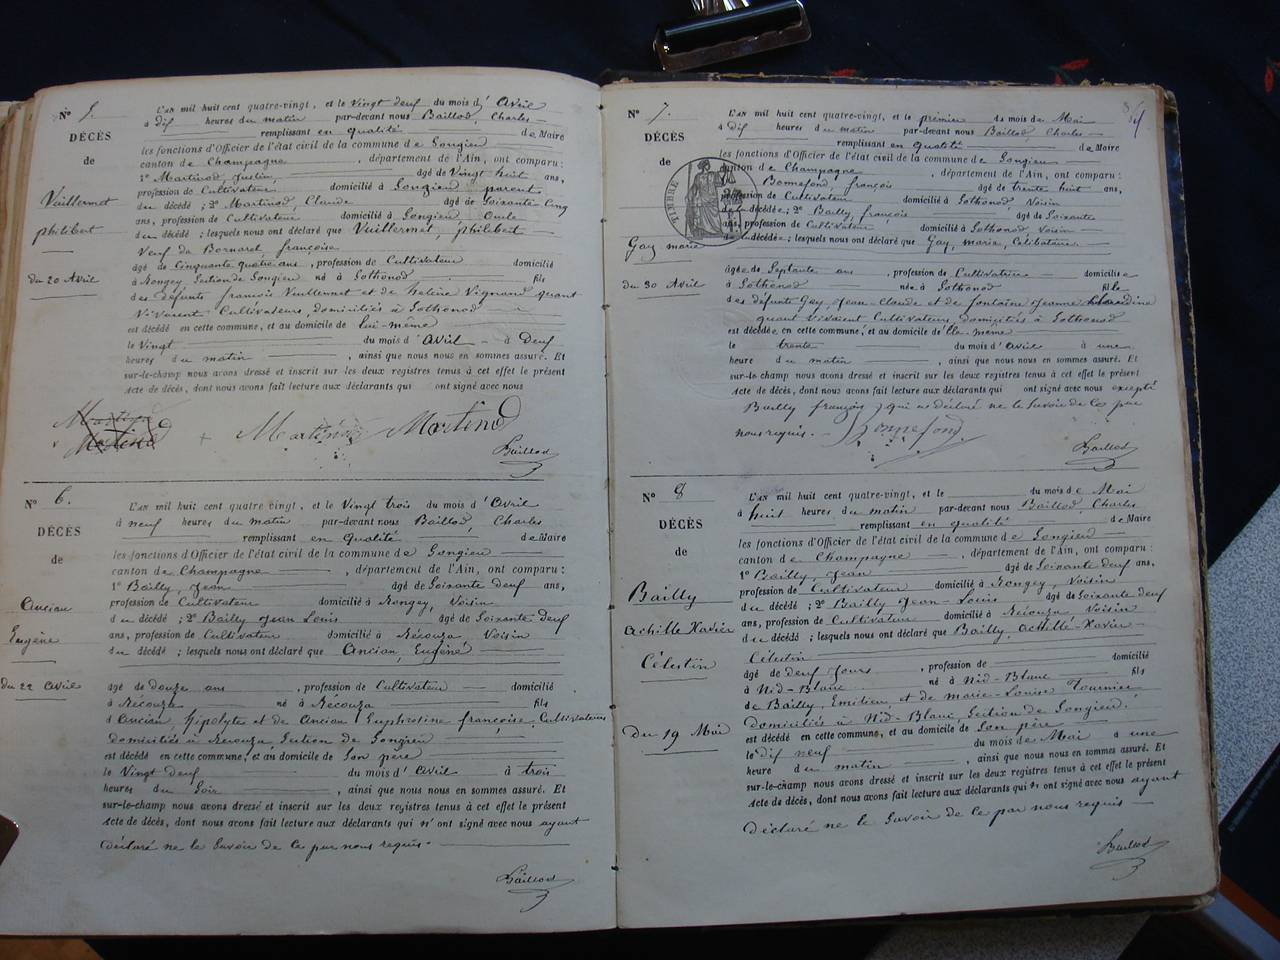 N° 5.
DÉCÈS
de
Vuillermet
philibert
du 20 Avril
L'AN mil huit cent quatre-vingt, et le Vingt deux du mois d'Avril
à dix heures du matin par-devant nous Baillod, Charles
remplissant en qualité de Maire
les fonctions d'Officier de l'état civil de la commune de Songieu
canton de Champagne, département de l'Ain, ont comparu :
1° Martinod Justin, âgé de Vingt huit ans,
profession de Cultivateur domicilié à Songieu parent
du décédé ; 2° Martinod Claude âgé de Soixante-Cinq
ans, profession de Cultivateur domicilié à Songieu Oncle
du décédé ; lesquels nous ont déclaré que Vuillermet, philibert
Veuf de Bornarel, françoise
âgé de Cinquante quatre ans, profession de Cultivateur domicilié
à Hongey, Section de Songieu né à Sothonod fils
des défunts françois Vuillermet et de helène Vignand quant
Vivaient Cultivateurs, domiciliés à Sothonod
est décédé en cette commune, et au domicile de lui-même
le Vingt du mois d'Avril à Deux
heures du matin, ainsi que nous nous en sommes assuré. Et
sur-le-champ nous avons dressé et inscrit sur les deux registres tenus à cet effet le présent
acte de décès, dont nous avons fait lecture aux déclarants qui ont signé avec nous
Martinod Martinod
Baillod
N° 6.
DÉCÈS
de
Ancian
Eugène
du 22 Avril
L'AN mil huit cent quatre-vingt, et le Vingt trois du mois d'Avril
à neuf heures du matin par-devant nous Baillod, Charles
remplissant en qualité de Maire
les fonctions d'Officier de l'état civil de la commune de Songieu
canton de Champagne, département de l'Ain, ont comparu :
1° Bailly, Jean âgé de Soixante deux ans,
profession de Cultivateur domicilié à Hongey, Voisin
du décédé ; 2° Bailly Jean Louis âgé de Soixante deux
ans, profession de Cultivateur domicilié à Récouza, Voisin
du décédé ; lesquels nous ont déclaré que Ancian, Eugène
âgé de douze ans, profession de Cultivateur domicilié
à Récouza né à Récouza fils
d'Ancian, hipolyte et de Ancian Euphrosine françoise, Cultivateurs
domiciliés à Récouza, Section de Songieu
est décédé en cette commune, et au domicile de Son père
le Vingt deux du mois d'Avril à trois
heures du Soir, ainsi que nous nous en sommes assuré. Et
sur-le-champ nous avons dressé et inscrit sur les deux registres tenus à cet effet le présent
acte de décès, dont nous avons fait lecture aux déclarants qui n'ont signé avec nous ayant
déclaré ne le Savoir de Ce par nous requis.
Baillod
N° 7.
DÉCÈS
de
TIMBRE
Gay marie
du 30 Avril
L'AN mil huit cent quatre-vingt, et le premier du mois de Mai
à dix heures du matin par-devant nous Baillod, Charles
remplissant en qualité de Maire
les fonctions d'Officier de l'état civil de la commune de Songieu
canton de Champagne, département de l'Ain, ont comparu :
Bonnefond, françois âgé de trente huit ans,
profession de Cultivateur domicilié à Sothonod Voisin
de la décédée ; 2° Bailly, françois âgé de Soixante
ans, profession de Cultivateur domicilié à Sothonod, Voisin
de la décédée ; lesquels nous ont déclaré que Gay, marie, Célibataire
âgée de Septante ans, profession de Cultivatrice domiciliée
à Sothonod née à Sothonod fille
des défunts Gay, Jean-Claude et de fontaine Jeanne Claudine
quant vivaient Cultivateurs, domiciliés à Sothonod
est décédée en cette commune, et au domicile d'Elle-même
le trente du mois d'Avril à une
heure du matin, ainsi que nous nous en sommes assuré. Et
sur-le-champ nous avons dressé et inscrit sur les deux registres tenus à cet effet le présent
acte de décès, dont nous avons fait lecture aux déclarants qui ont signé avec nous excepté
Bailly françois qui a déclaré ne le Savoir de Ce par
nous requis. Bonnefond
Baillod
N° 8
DÉCÈS
de
Bailly
Achille Xavier
Célestin
Du 19 Mai
L'AN mil huit cent quatre-vingt, et le du mois de Mai
à huit heures du matin par-devant nous Baillod, Charles
remplissant en qualité de Maire
les fonctions d'Officier de l'état civil de la commune de Songieu
canton de Champagne, département de l'Ain, ont comparu :
1° Bailly, Jean âgé de Soixante deux ans,
profession de Cultivateur domicilié à Hongey, Voisin
du décédé ; 2° Bailly Jean-Louis âgé de Soixante deux
ans, profession de Cultivateur domicilié à Récouza Voisin
du décédé ; lesquels nous ont déclaré que Bailly, Achille-Xavier
Célestin
âgé de deux Jours, profession de domicilié
à Nid-Blanc né à Nid-Blanc fils
de Bailly, Emilien, et de marie-Louise Tournier
domiciliés à Nid-Blanc, Section de Songieu.
est décédé en cette commune, et au domicile de Son père
le dix neuf du mois de Mai à une
heure du matin, ainsi que nous nous en sommes assuré. Et
sur-le-champ nous avons dressé et inscrit sur les deux registres tenus à cet effet le présent
acte de décès, dont nous avons fait lecture aux déclarants qui n'ont signé avec nous ayant
déclaré ne le Savoir de Ce par nous requis
Baillod